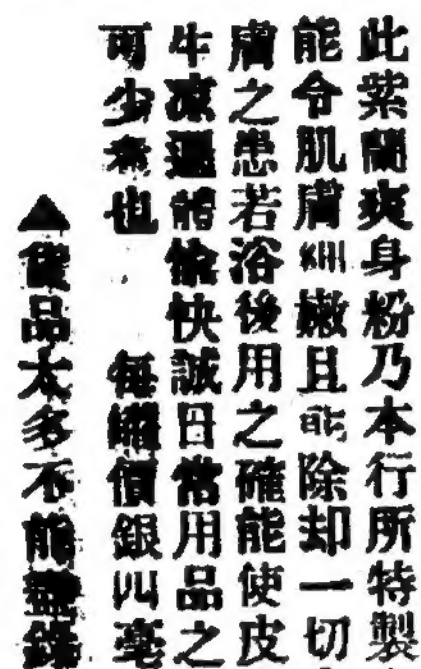 此紫蘭爽身粉乃本行所特製
能令肌膚細嫩且能除却一切
膚之患若浴後用之確能使皮
生凉遍體愉快誠日常用品之
可少者也　每罐價銀四毫
▲貨品太多不能盡錄